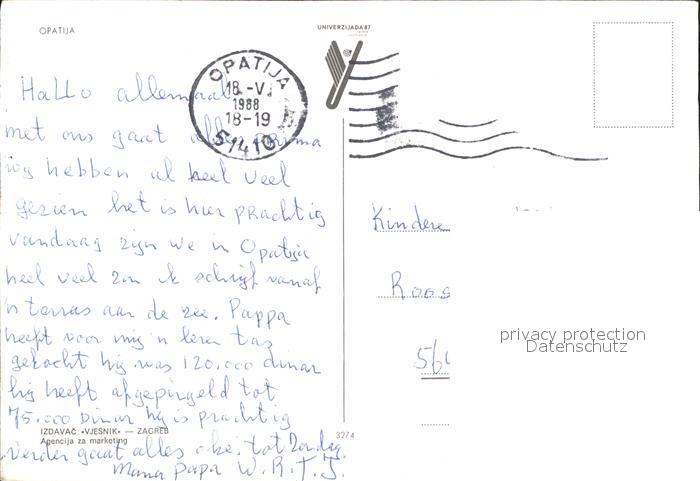 OPATIJA
UNIVERZIJADA 87
OPATIJA
18.-V
1988
18-19
51410
Hallo allemaal
met ons gaat alles prima
wij hebben al heel veel
gezien het is hier prachtig
vandaag zijn we in Opatija
heel veel zon ik schrijf vanaf
'n terras aan de zee. Pappa
heeft voor mij 'n leren tas
gekocht hij was 120.000 dinar
hij heeft afgepingeld tot
75.000 Dinar hij is prachtig
IZDAVAČ »VJESNIK« — ZAGREB
Agencija za marketing
verder gaat alles oke. tot Zondag.
Mama Papa W. R. T. J.
3274
Kindere
Roos
56
privacy protection
Datenschutz